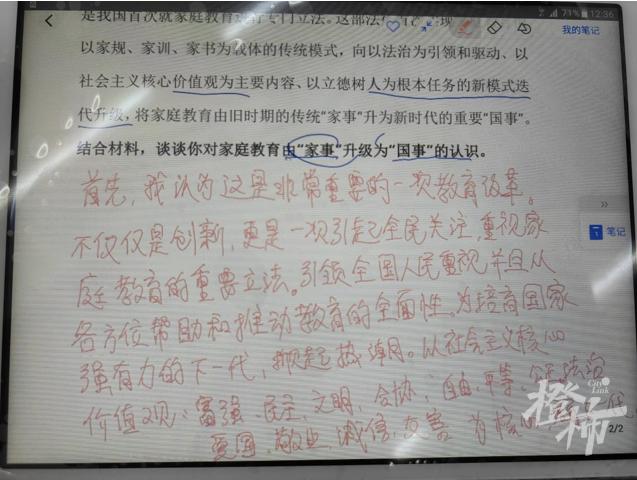 71% 12:36
是我国首次就家庭教育进行专门立法。这部法
我的笔记
以家规、家训、家书为载体的传统模式，向以法治为引领和驱动、以
社会主义核心价值观为主要内容、以立德树人为根本任务的新模式迭
代升级，将家庭教育由旧时期的传统“家事”升为新时代的重要“国事”。
结合材料，谈谈你对家庭教育由“家事”升级为“国事”的认识。
首先，我认为这是非常重要的一次教育改革。
不仅仅是创新，更是一次引起全民关注，重视家
笔记
庭教育的重要立法。引领全国人民重视并且从
各方位帮助和推动教育的全面性，为培育国家
强有力的下一代，掀起热潮。从社会主义核心
价值观：富强、民主、文明、合协，自由、平等、公正、法治
爱国、敬业、诚信、友善 为核心
City Link
橙柿
2/2